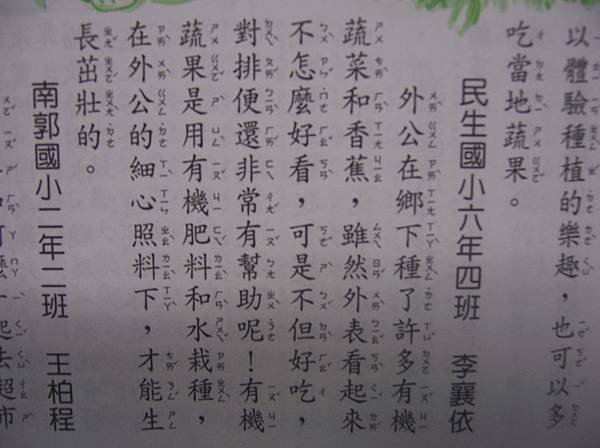 以體驗種植的樂趣，也可以多
吃當地蔬果。
民生國小六年四班 李襄依
外公在鄉下種了許多有機
蔬菜和香蕉，雖然外表看起來
不怎麼好看，可是不但好吃，
對排便還非常有幫助呢！有機
蔬果是用有機肥料和水栽種，
在外公的細心照料下，才能生
長茁壯的。
南郭國小二年二班 王柏程
一起去超市